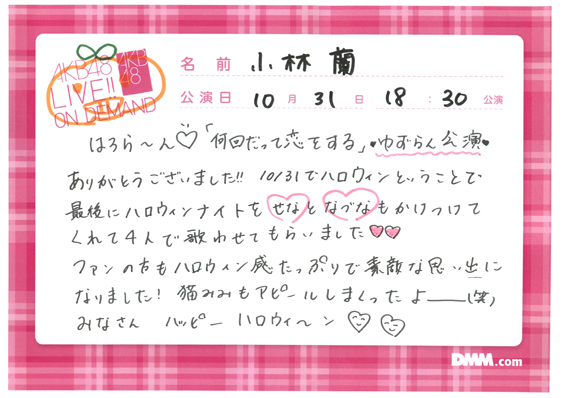 AKB48
LIVE!!
ON DEMAND
AKB
48
名前 小林蘭
公演日 10月31日 18:30公演
はろら〜ん♡「何回だって恋をする」♥ゆずらん公演♥
ありがとうございました!! 10/31でハロウィンということで
最後にハロウィンナイトをせなとなづなもかけつけて
くれて4人で歌わせてもらいました♥♥
ファンの方もハロウィン感たっぷりで素敵な思い出に
なりました! 猫みみもアピールしまくったよー(笑)
みなさん ハッピー ハロウィ〜ン♡♡
DMM.com